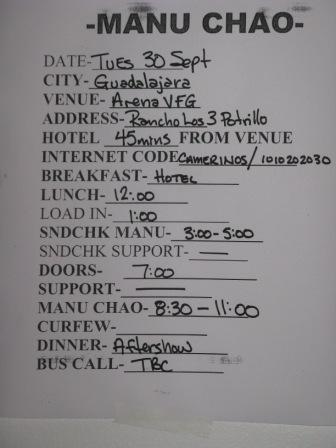 -MANU CHAO-
DATE- Tues 30 Sept
CITY- Guadalajara
VENUE- Arena VFG
ADDRESS- Rancho Los 3 Potrillo
HOTEL 45mins FROM VENUE
INTERNET CODE CAMERINOS/1010202030
BREAKFAST- HOTEL
LUNCH- 12:00
LOAD IN- 1:00
SNDCHK MANU- 3:00-5:00
SNDCHK SUPPORT- —
DOORS- 7:00
SUPPORT- —
MANU CHAO- 8:30-11:00
CURFEW-
DINNER- Aftershow
BUS CALL- TBC